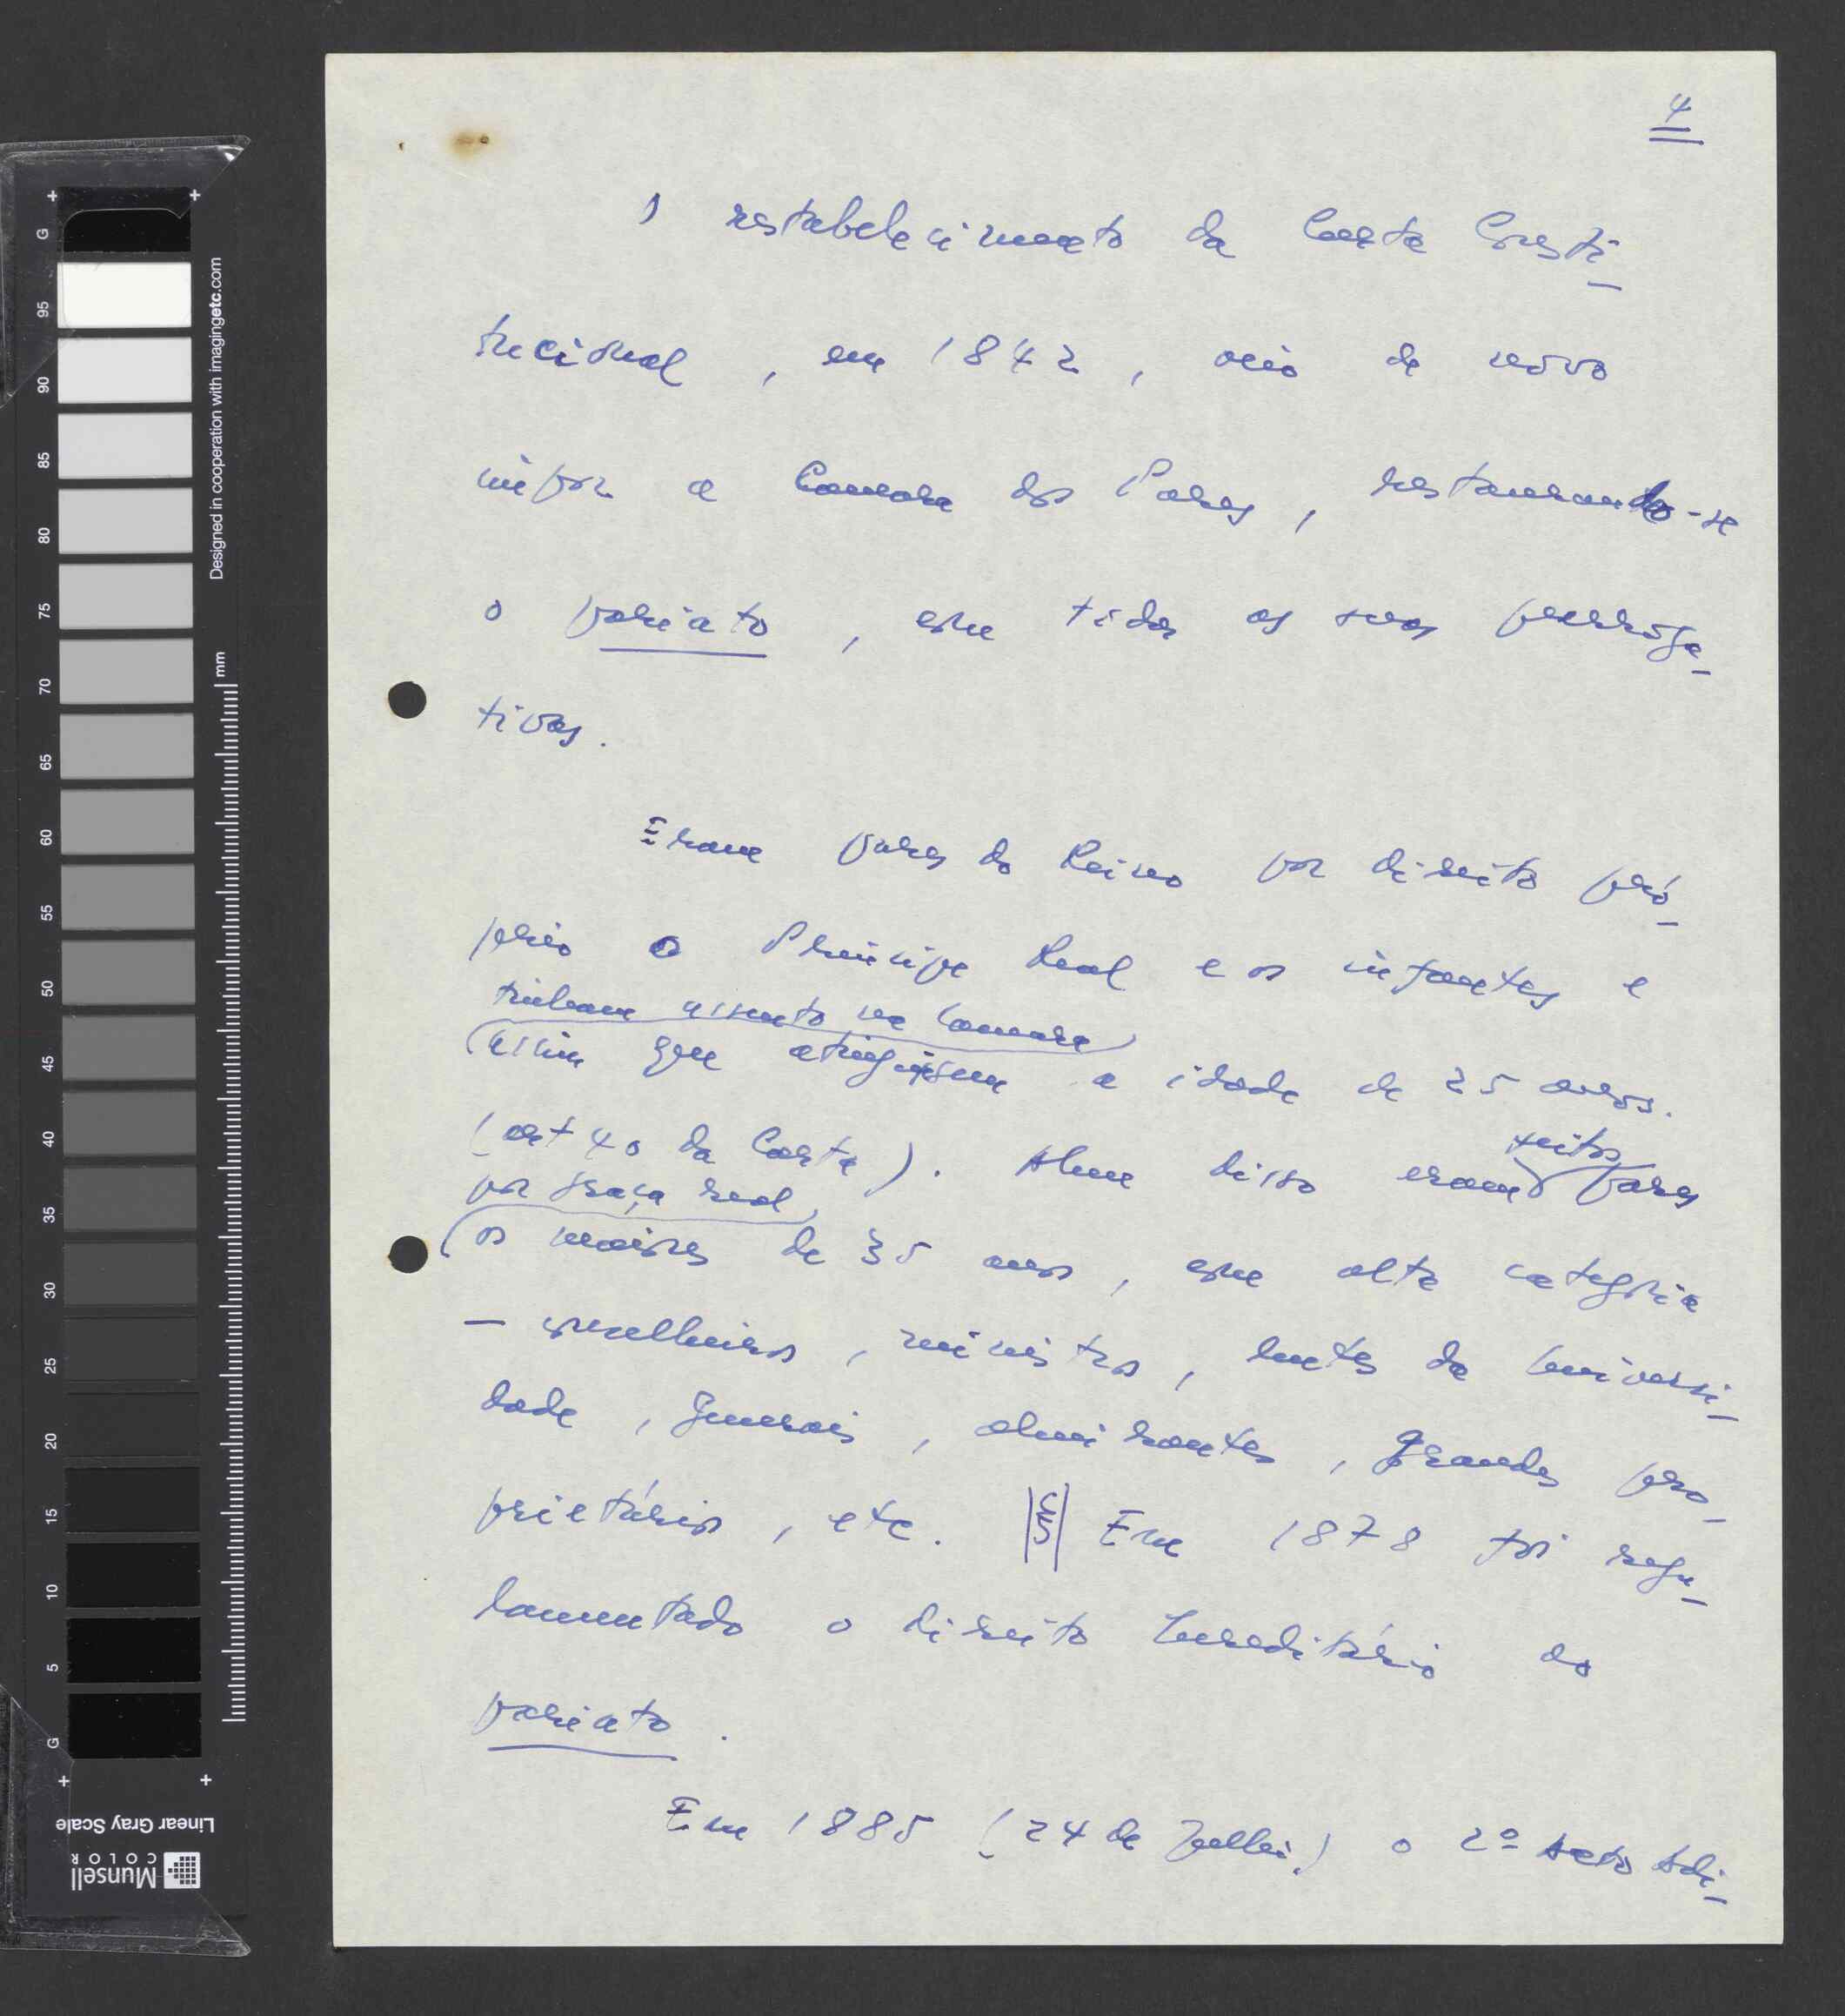 4
O restabelecimento da Carta Consti-
tucional, em 1842, veio de novo
impor a Camara dos Pares, restaurando-se
o pariato, com todas as suas prerroga-
tivas.
Eram pares do Reino por direito pró-
prio o Principe Real e os infantes e
tinham assento na Camara
assim que atingissem a idade de 25 anos.
(art 40 da Carta). Alem disso eram feitos pares
por graça real
os maiores de 35 anos, com alta categoria
— conselheiros, ministros, lentes da Universi-
dade, generais, almirantes, grandes pro-
prietários, etc. Em 1878 foi regu-
lamentado o direito hereditário do
pariato.
Em 1885 (24 de Julho) o 2º Acto Adi-
Designed in cooperation with imagingetc.com
mm
G 95 90 85 80 75 70 65 60 55 50 45 40 35 30 25 20 15 10 5 G
Linear Gray Scale
Munsell
COLOR